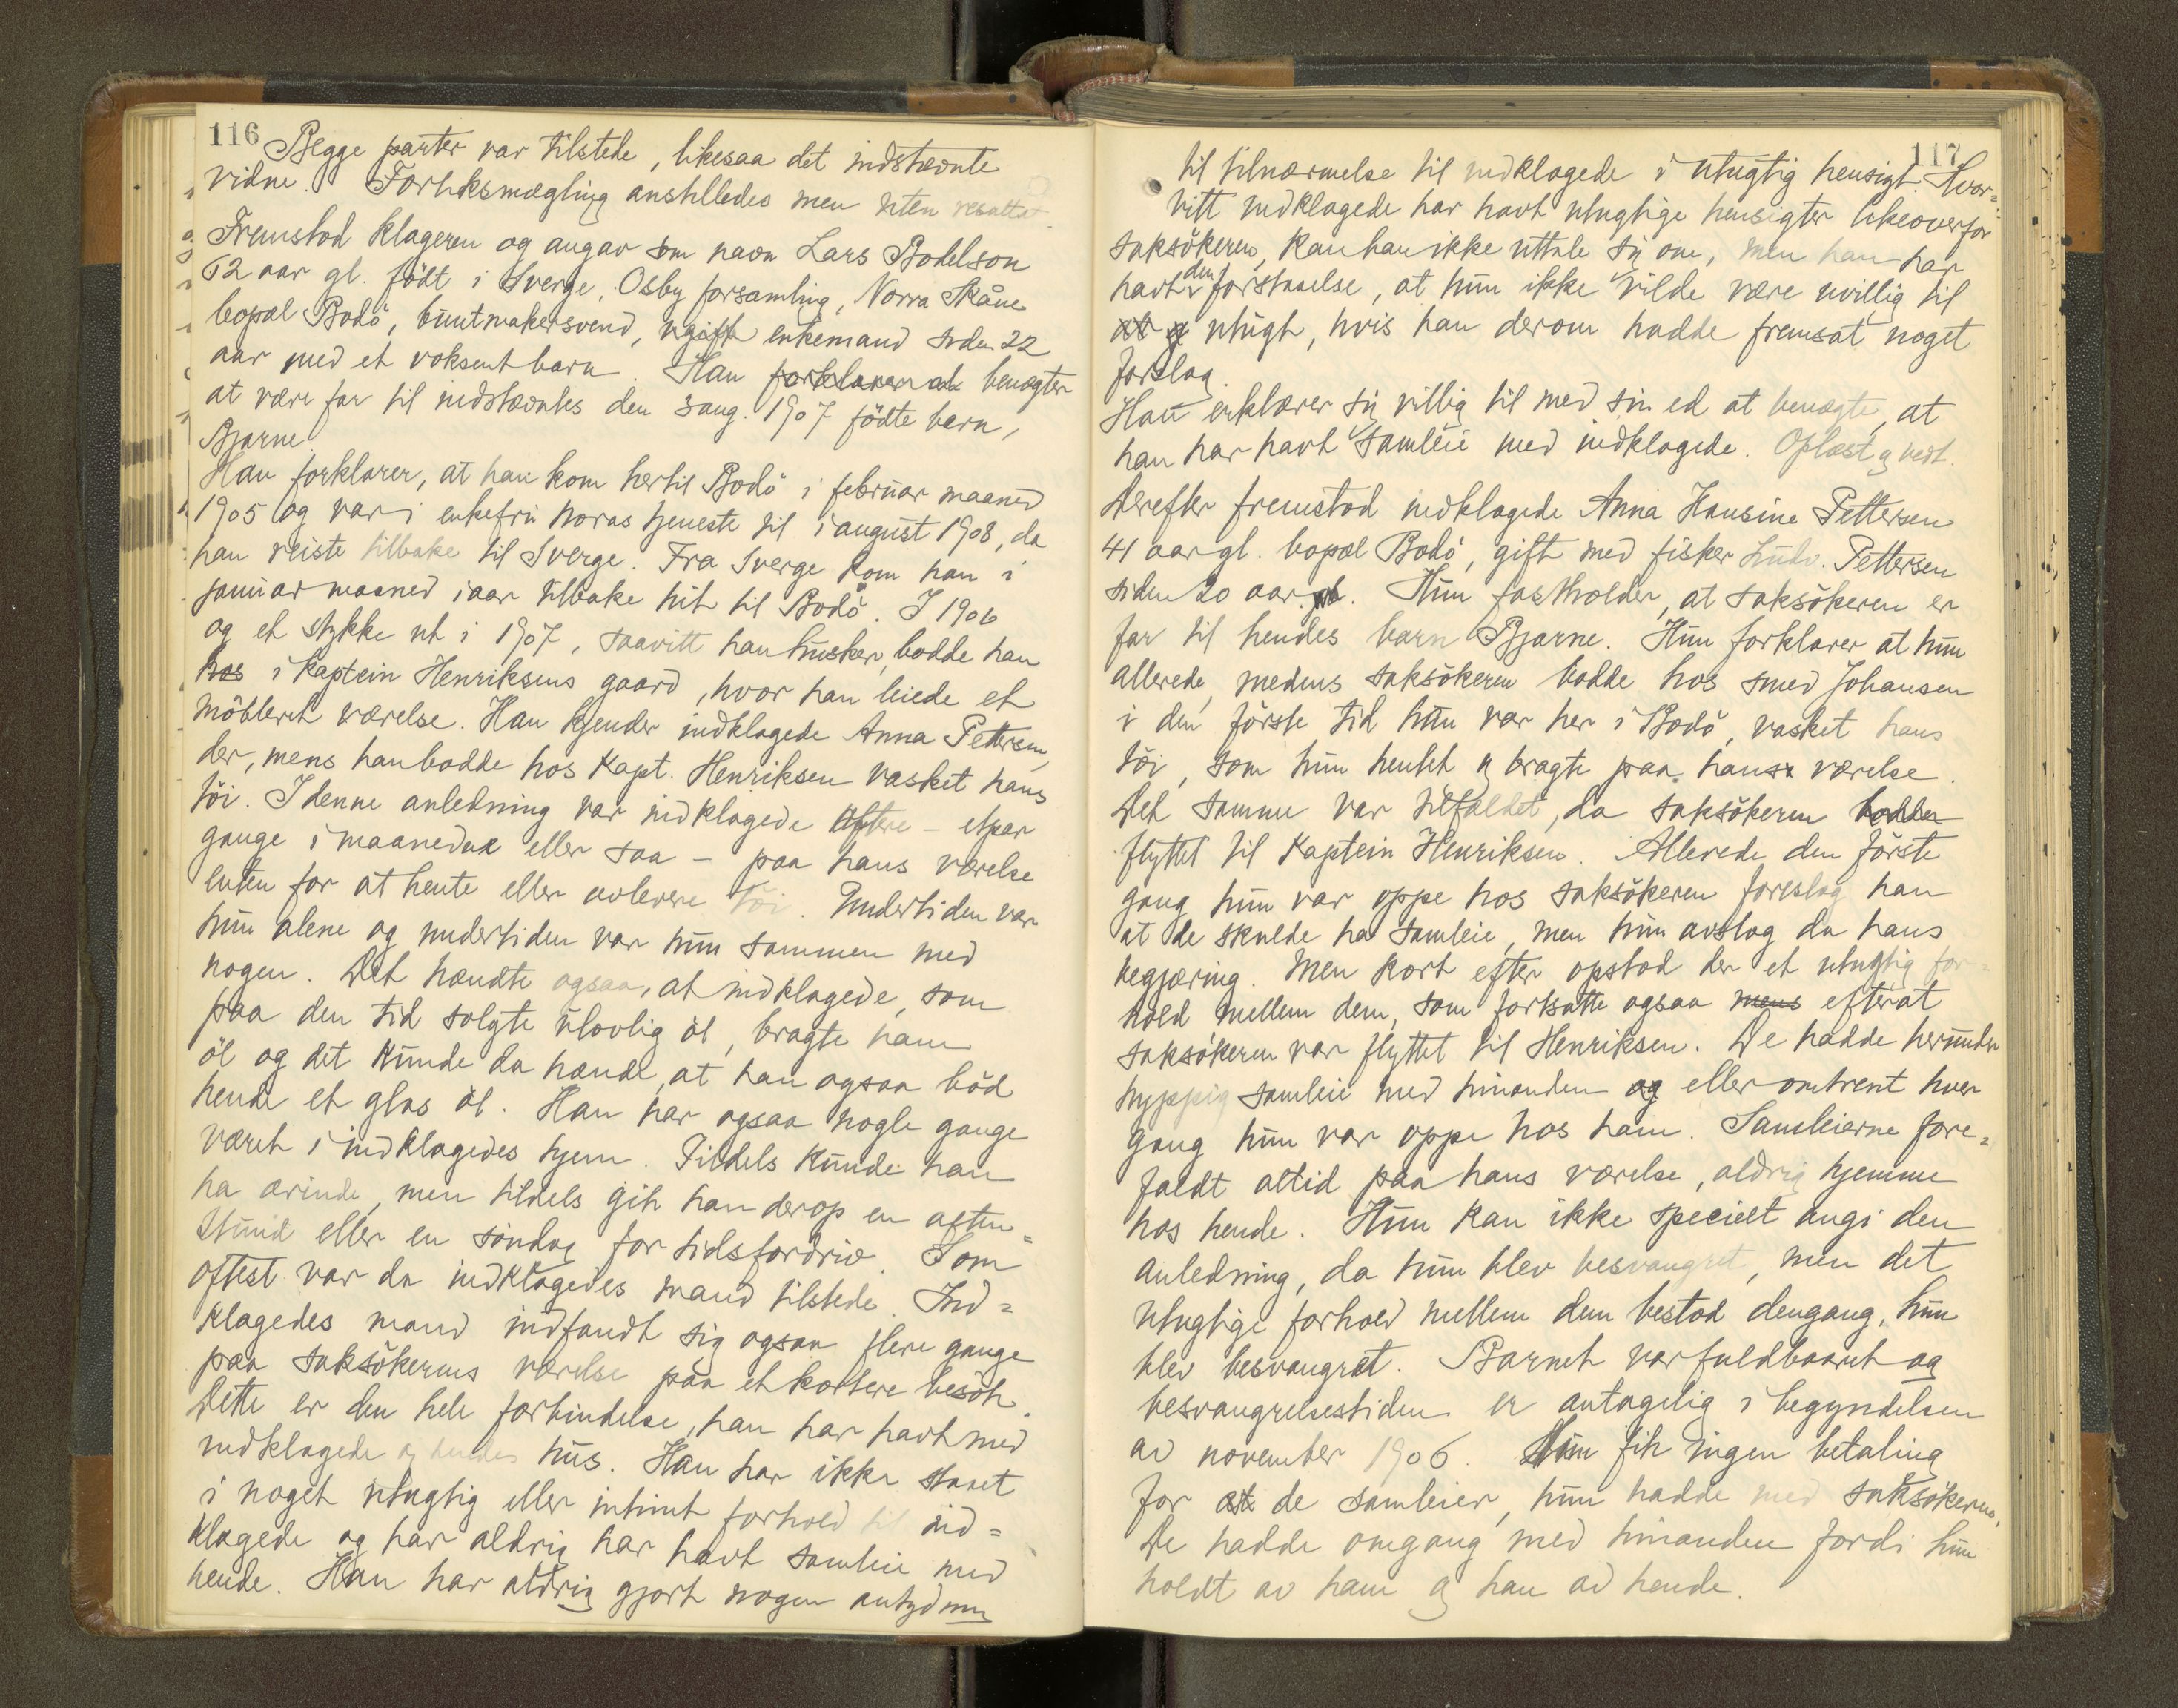 116
Begge parter var tilstede, likesaa det indstævnte
vidne. Forliksmægling anstilledes men uten resultat.
Fremstod klageren og angav som navn Lars Bodelson
62 aar gl. födt i Sverge, Osby forsamling, Norra Skåne
bopæl Bodö, buntmakersvend, ugift enkemand siden 22
aar med et voksent barn. Han forklarer at benægter
at være far til indstævntes den 3 aug. 1907 födte barn,
Bjarne.
Han forklarer, at han kom hertil Bodö i februar maaned
1905 og var i enkefru Moras tjeneste til i august 1908, da
han reiste tilbake til Sverge. Fra Sverge kom han i
januar maaned iaar tilbake hit til Bodö. I 1906
og et stykke ut i 1907, saavitt han husker, bodde han
hos i Kaptein Henriksens gaard, hvor han leiede et
möbleret værelse. Han kjender indklagede Anna Pettersen,
der, mens han bodde hos Kapt. Henriksen vasket hans
töi. I denne anledning var indklagede oftere – etpar
gange i maaneden eller saa – paa hans værelse
enten for at hente eller avlevere töi. Undertiden var
hun alene og undertiden var hun sammen med
nogen. Det hændte ogsaa, at indklagede, som
paa den tid solgte ulovlig öl, bragte ham
öl og det kunde da hænde, at han ogsaa böd
hende et glas öl. Han har ogsaa nogle gange
været i indklagedes hjem. Tildels kunde han
ha ærinde, men tildels gik han derop en aften=
stund eller en söndag for tidsfordriv. Som
oftest var da indklagedes mand tilstede. Ind=
klagedes mand indfandt sig ogsaa flere gange
paa saksökerens værelse paa et kortere besök.
Dette er den hele forbindelse, han har havt med
indklagede og hendes hus. Han har ikke staaet
i noget utugtig eller intimt forhold til ind=
klagede og har aldrig har havt samleie med
hende. Han har aldrig gjort nogen antydning
117
til tilnærmelse til indklagede i utugtig hensigt. Hvor=
vitt indklagede har havt utugtige hensigter likeoverfor
saksökeren, kan han ikke uttale sig om, men han har
havt den forstaaelse, at hun ikke vilde være uvillig til
at g utugt, hvis han derom hadde fremsat noget
forslag.
Han erklærer sig villig til med sin ed at benægte, at
han har havt samleie med indklagede. Oplæst og vedt.
Derefter fremstod indklagede Anna Hansine Pettersen
41 aar gl. bopæl Bodö, gift med fisker Ludv. Pettersen
siden 20 aar. Hun fastholder, at saksökeren er
far til hendes barn Bjarne. Hun forklarer at hun
allerede, medens saksökeren bodde hos smed Johansen
i den förste tid hun var her i Bodö, vasket hans
töi, som hun hentet og bragte paa hans værelse.
Det samme var tilfældet, da saksökeren bodde
flyttet til Kaptein Henriksen. Allerede den förste
gang hun var oppe hos saksökeren foreslog han
at de skulde ha samleie, men hun avslog da hans
begjæring. Men kort efter opstod der et utugtig for=
hold mellem dem, som fortsatte ogsaa mens efterat
saksökeren var flyttet til Henriksen. De hadde herunder
hyppig samleie med hinanden og eller omtrent hver
gang hun var oppe hos ham. Samleierne fore=
faldt altid paa hans værelse, aldrig hjemme
hos hende. Hun kan ikke specielt angi den
anledning, da hun blev besvangret, men det
utugtige forhold mellem dem bestod dengang, hun
blev besvangret. Barnet var fuldbaaret og
besvangrelsestiden er antagelig i begyndelsen
av november 1906. Hun fik ingen betaling
for at de samleier, hun hadde med saksökeren.
De hadde omgang med hinanden fordi hun
holdt av ham og han av hende.